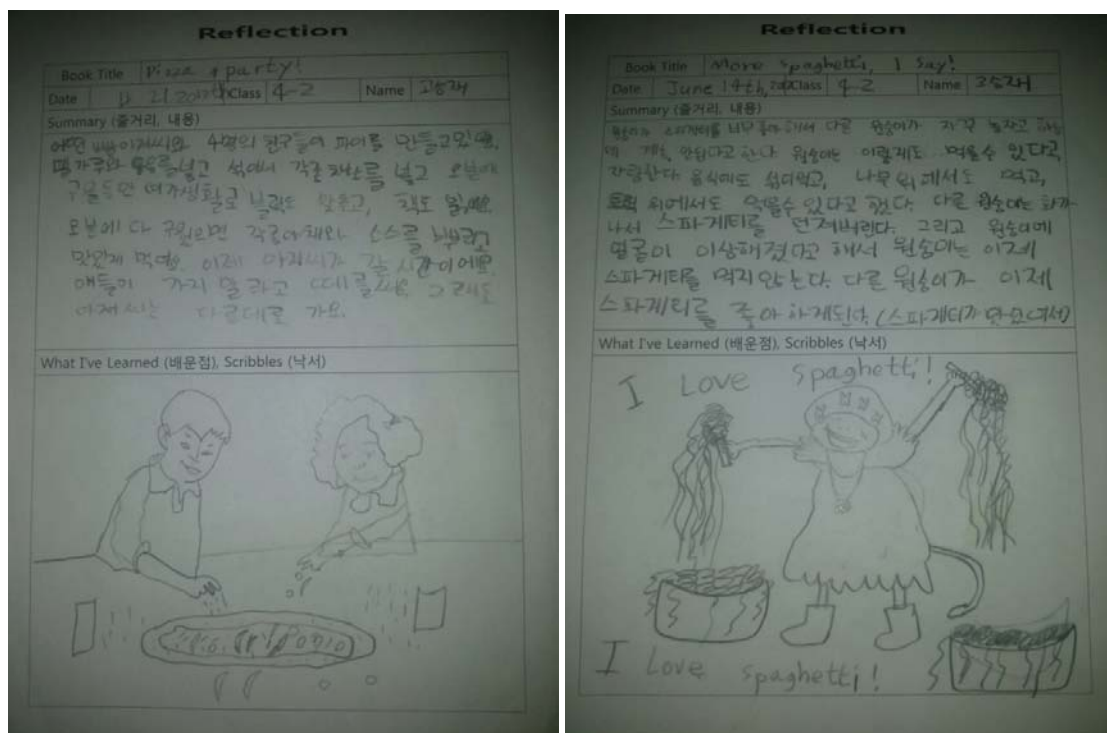 Reflection
Book Title Pizza party!
Date Class 4-2 Name
Summary (줄거리, 내용)
어떤 아저씨와 4명의 친구들이 파이를 만들고
밀가루와 넣고 섞어서 각종 넣고 오븐에
블럭도 맞추고, 책도
오븐에 다 각종야채와 소스를
맛있게 이제 아저씨가 갈 시간이에요.
애들이 가지 말라고 그래도
아저씨는 다른데로 가요.
What I've Learned (배운점), Scribbles (낙서)
Reflection
Book Title More spaghetti, I say!
Date June 14th, Class 4-2 Name
Summary (줄거리, 내용)
원숭이가 스파게티를 너무 좋아해서 다른 원숭이가 자꾸 놀자고 하는
데 계속 안된다고 한다. 원숭이는 이렇게도 먹을수 있다고
자랑한다. 음식에도 섞어먹고, 나무 위에서도 먹고,
위에서도 먹을수 있다고 했다. 다른 원숭이는 화가
나서 스파게티를 던져버린다. 그리고 원숭이에
얼굴이 이상해졌다고 해서 원숭이는 이제
스파게티를 먹지않는다. 다른 원숭이가 이제
스파게티를 좋아하게된다. (스파게티가 맛있어서)
What I've Learned (배운점), Scribbles (낙서)
I Love spaghetti!
I Love spaghetti!